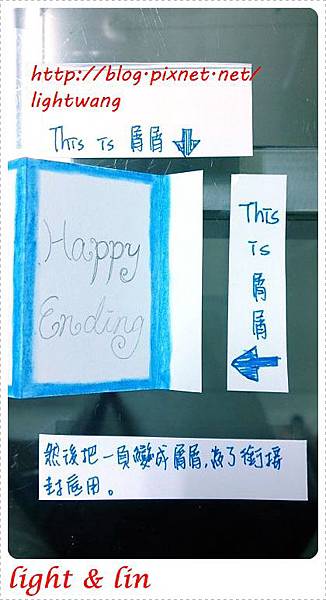 http://blog.pixnet.net/
lightwang
This is 屑屑
Happy
Ending
This
is
屑
屑
然後把一頁變成屑屑,為了銜接
封底用。
light & lin